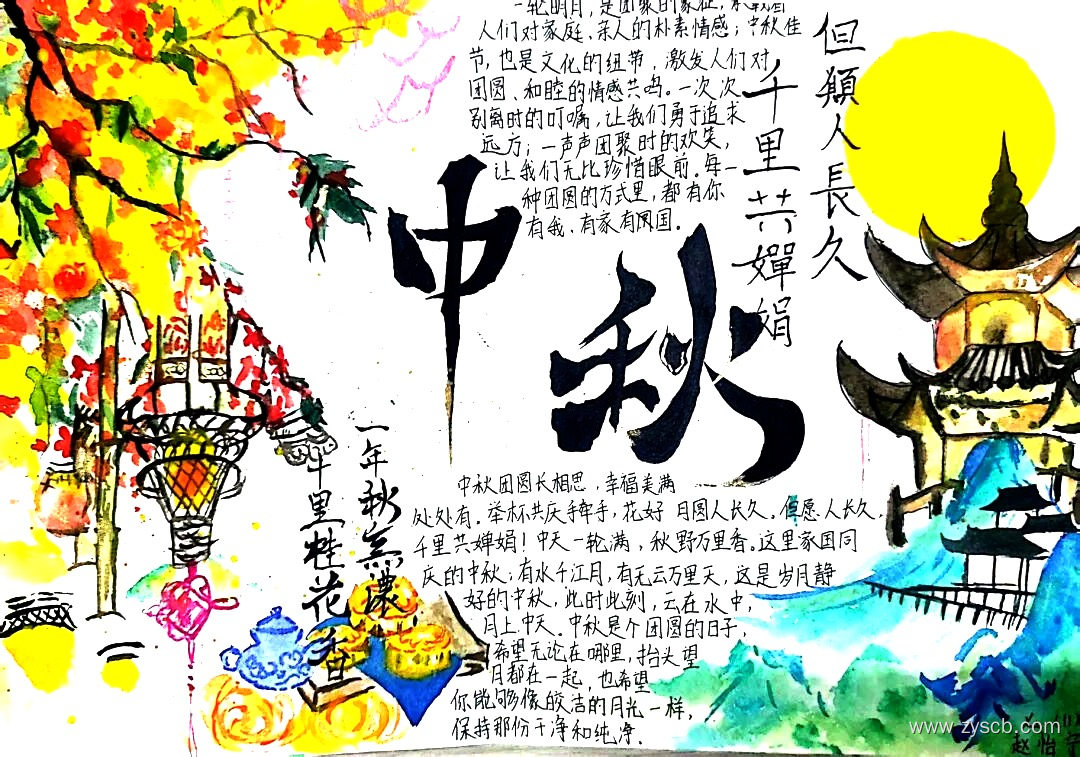 一轮明月，是团聚的象征，承载着
人们对家庭、亲人的朴素情感；中秋佳
节，也是文化的纽带，激发人们对
团圆、和睦的情感共鸣。一次次
别离时的叮嘱，让我们勇于追求
远方；一声声团聚时的欢笑，
让我们无比珍惜眼前。每一
种团圆的方式里，都有你
有我、有家有国。
但願人長久
千里共嬋娟
中秋
一年秋意濃
十里桂花香
中秋团圆长相思，幸福美满
处处有。举杯共庆手牵手，花好月圆人长久。但愿人长久，
千里共婵娟！中天一轮满，秋野万里香。这里家国同
庆的中秋；有水千江月，有无云万里天，这是岁月静
好的中秋，此时此刻，云在水中，
月上中天。中秋是个团圆的日子，
希望无论在哪里，抬头望
月都在一起，也希望
你能够像皎洁的月光一样，
保持那份干净和纯净。
www.zyscb.com
赵怡宁